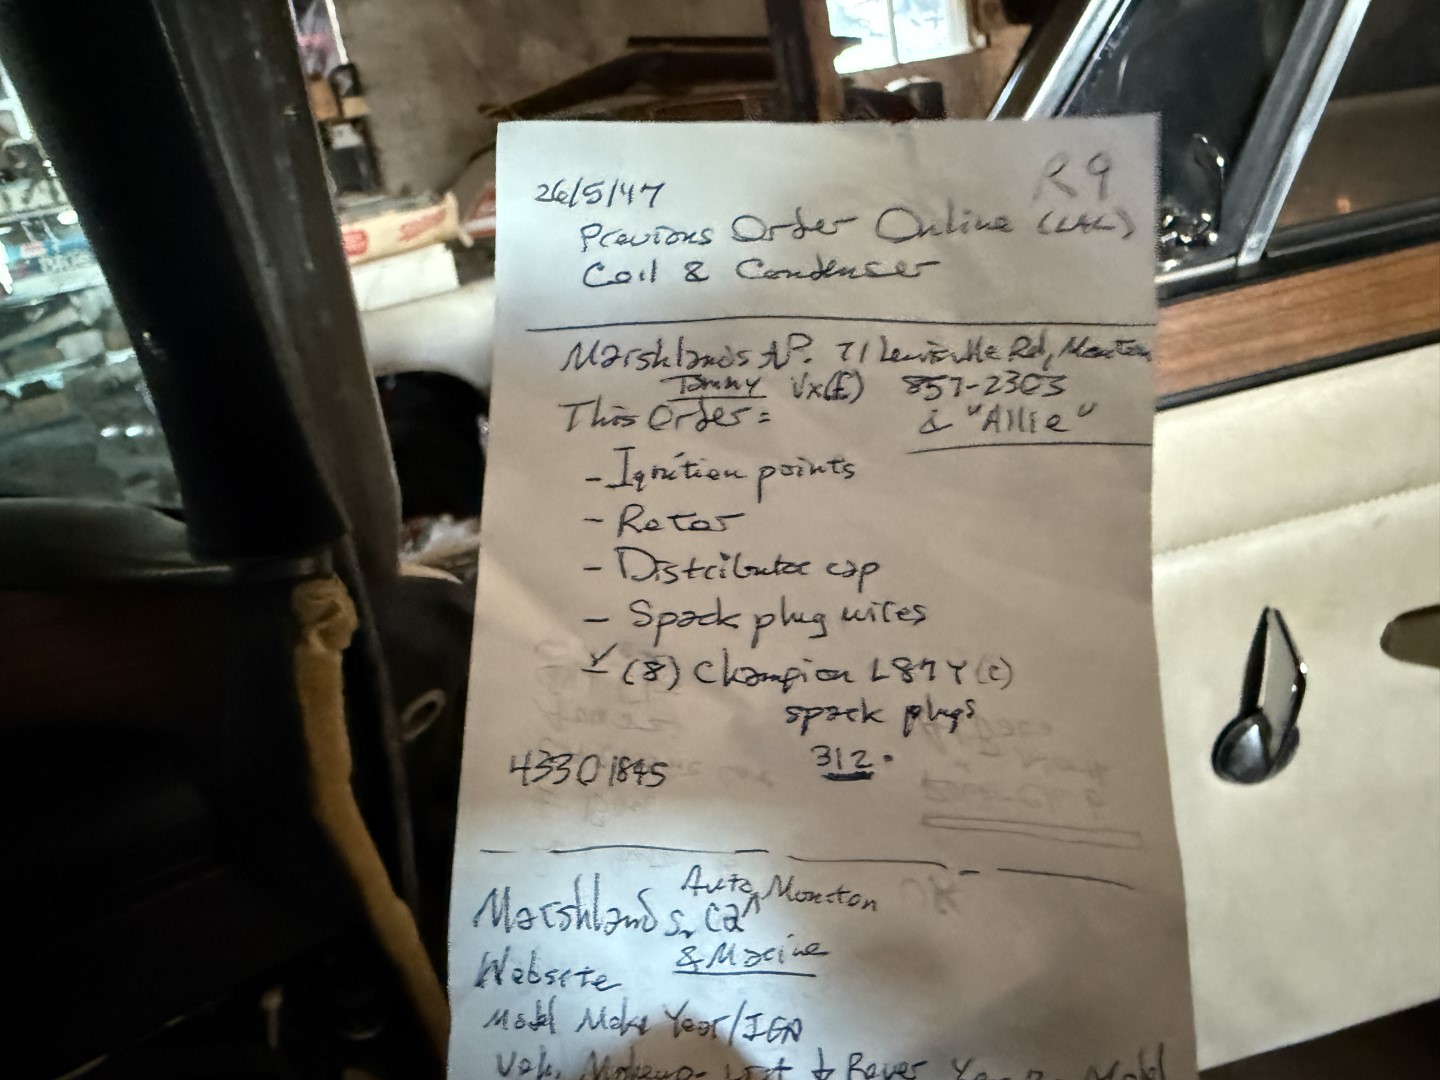 R9
26/5/47
Previous Order Online
Coil & Condenser
Marshlands AP. 71 Lewisville Rd, Moncton
Tammy 857-2303
This Order = & "Allie"
- Ignition points
- Rotor
- Distributor cap
- Spark plug wires
(8) Champion L87Y(c)
spark plugs
312.
43301845
Auto Moncton
Marshlands.ca
& Marine
Website
Model Make Year/IGN
Rover Model